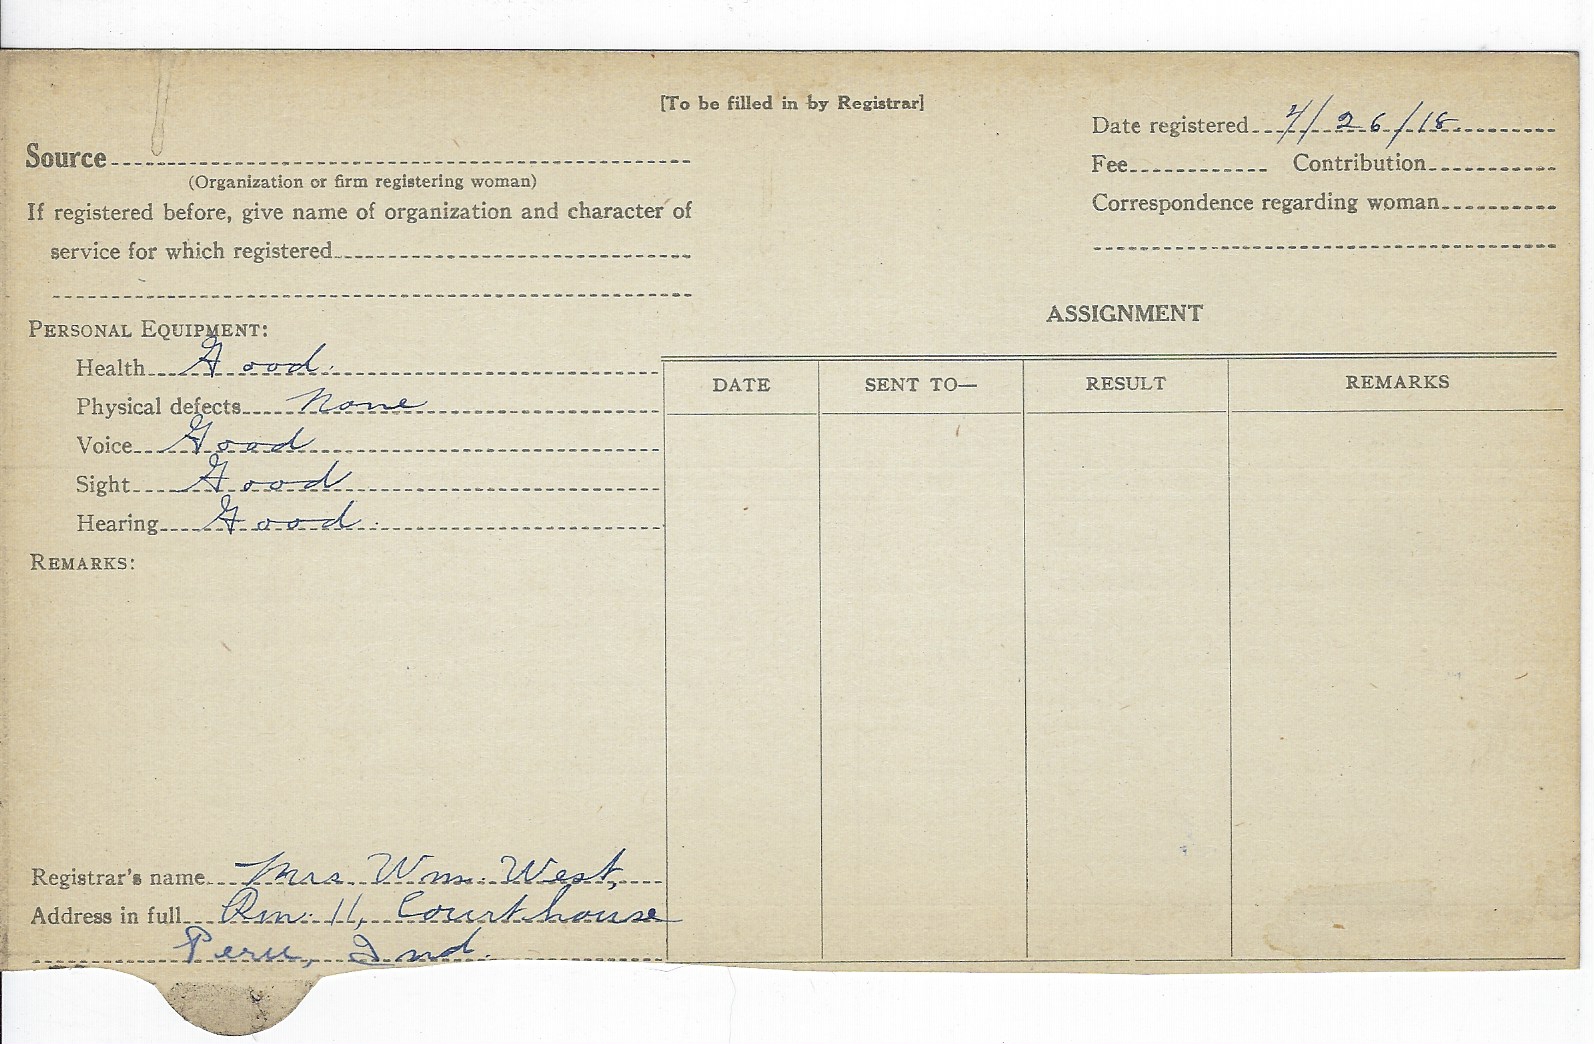 [To be filled in by Registrar]
Date registered 4/26/18
Source
(Organization or firm registering woman)
Fee Contribution
If registered before, give name of organization and character of
service for which registered
Correspondence regarding woman
ASSIGNMENT
PERSONAL EQUIPMENT:
Health Good.
Physical defects None
Voice Good
Sight Good
Hearing Good.
REMARKS:
DATE SENT TO— RESULT REMARKS
Registrar's name Mrs. Wm. West,
Address in full Rm. 11, Courthouse
Peru, Ind.